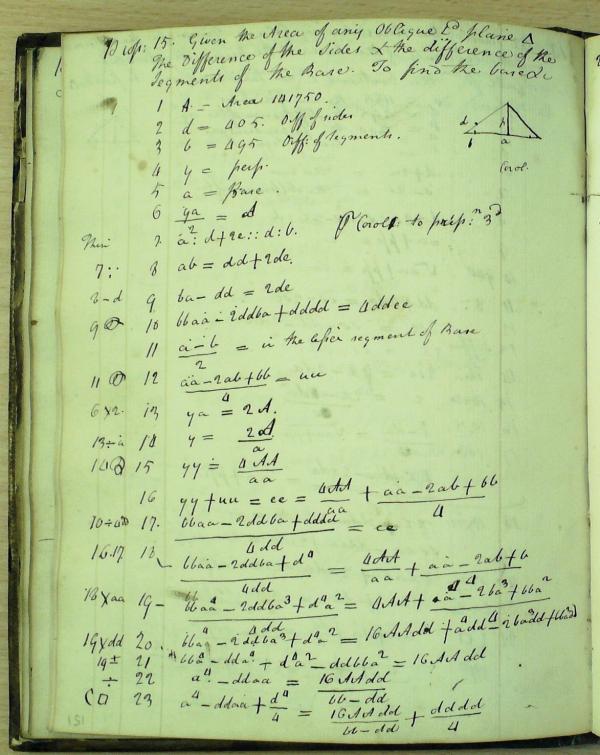 Prop: 15. Given the Area of any Oblique Ld plane Δ
The Difference of the Sides & the difference of the
Segments of the Base. To find the base &c
1 A = Area 141750.
2 d = 405. Diff of sides
3 b = 495 Diff: of segments.
4 y = perp.
5 a = Base.
Corol.
6 ya/2 = A
7. a : d+2e :: d : b. Corol 1 to prop: 3d
7:: 8 ab = dd + 2de.
8-d 9 ba - dd = 2de
9 10 bbaa - 2ddba + dddd = 4ddee
11 a-b/2 = u the lesser segment of Base
11 12 aa - 2ab + bb/4 = uu
6×2. 13 ya = 2A.
13÷a 14 y = 2A/a
14 15 yy = 4AA/aa
16 yy + uu = ee = 4AA/aa + aa - 2ab + bb/4
10÷4dd 17. bbaa - 2ddba + dddd/4dd = ee
16.17 18 bbaa - 2ddba + d⁴/4dd = 4AA/aa + aa - 2ab + b/4
18×aa 19 - bbaa⁴ - 2ddba³ + d⁴a²/4dd = 4AA + a⁴ - 2ba³ + bba²/4
19×dd 20. bba⁴ - 2ddba³ + d⁴a² = 16AAdd + a⁴dd - 2ba³dd + bba²dd
19± 21 bba⁴ - dda⁴ + d⁴a² - ddbba² = 16AAdd
÷ 22 a⁴ - ddaa = 16AAdd/bb - dd
C□ 23 a⁴ - ddaa + d⁴/4 = 16AAdd/bb - dd + dddd/4
151